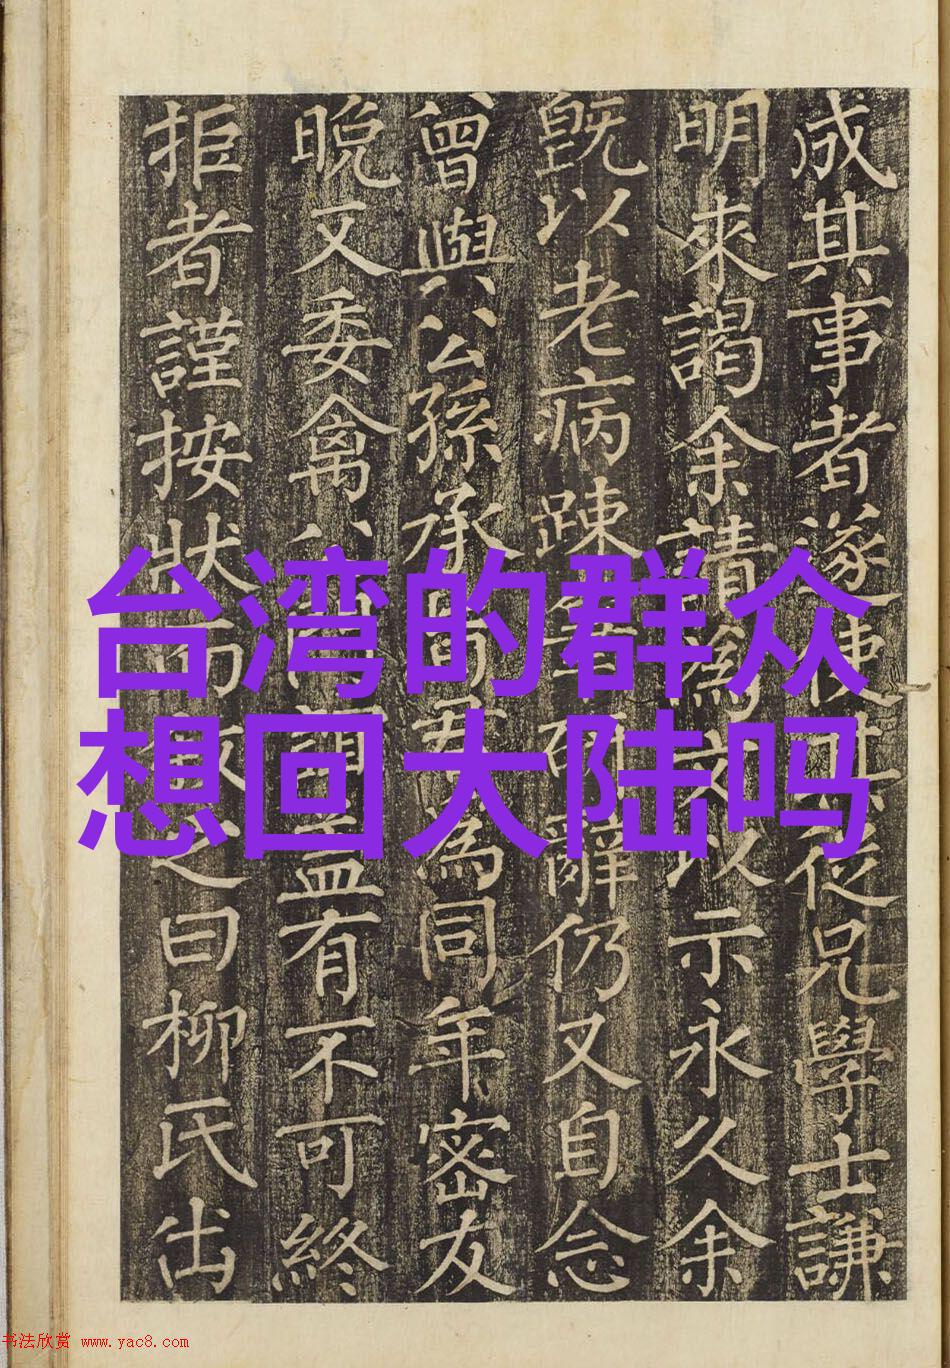 台湾的群众
想回大陆吗
成其事者遂使其從兄學士謙
明來謁余請為文以示永久余
既以老病踈筆硏辭仍又自念
曾與公孫承旨君為同年密友
晚又委禽公門誼盖有不可終
拒者謹按狀而敘之曰柳氏出
书法欣赏 www.yac8.com